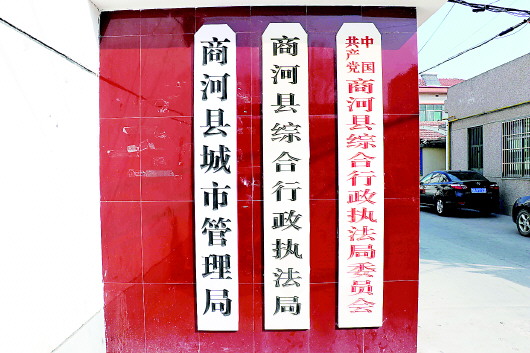 商河县城市管理局
商河县综合行政执法局
中国
共产党
商河县综合行政执法局委员会